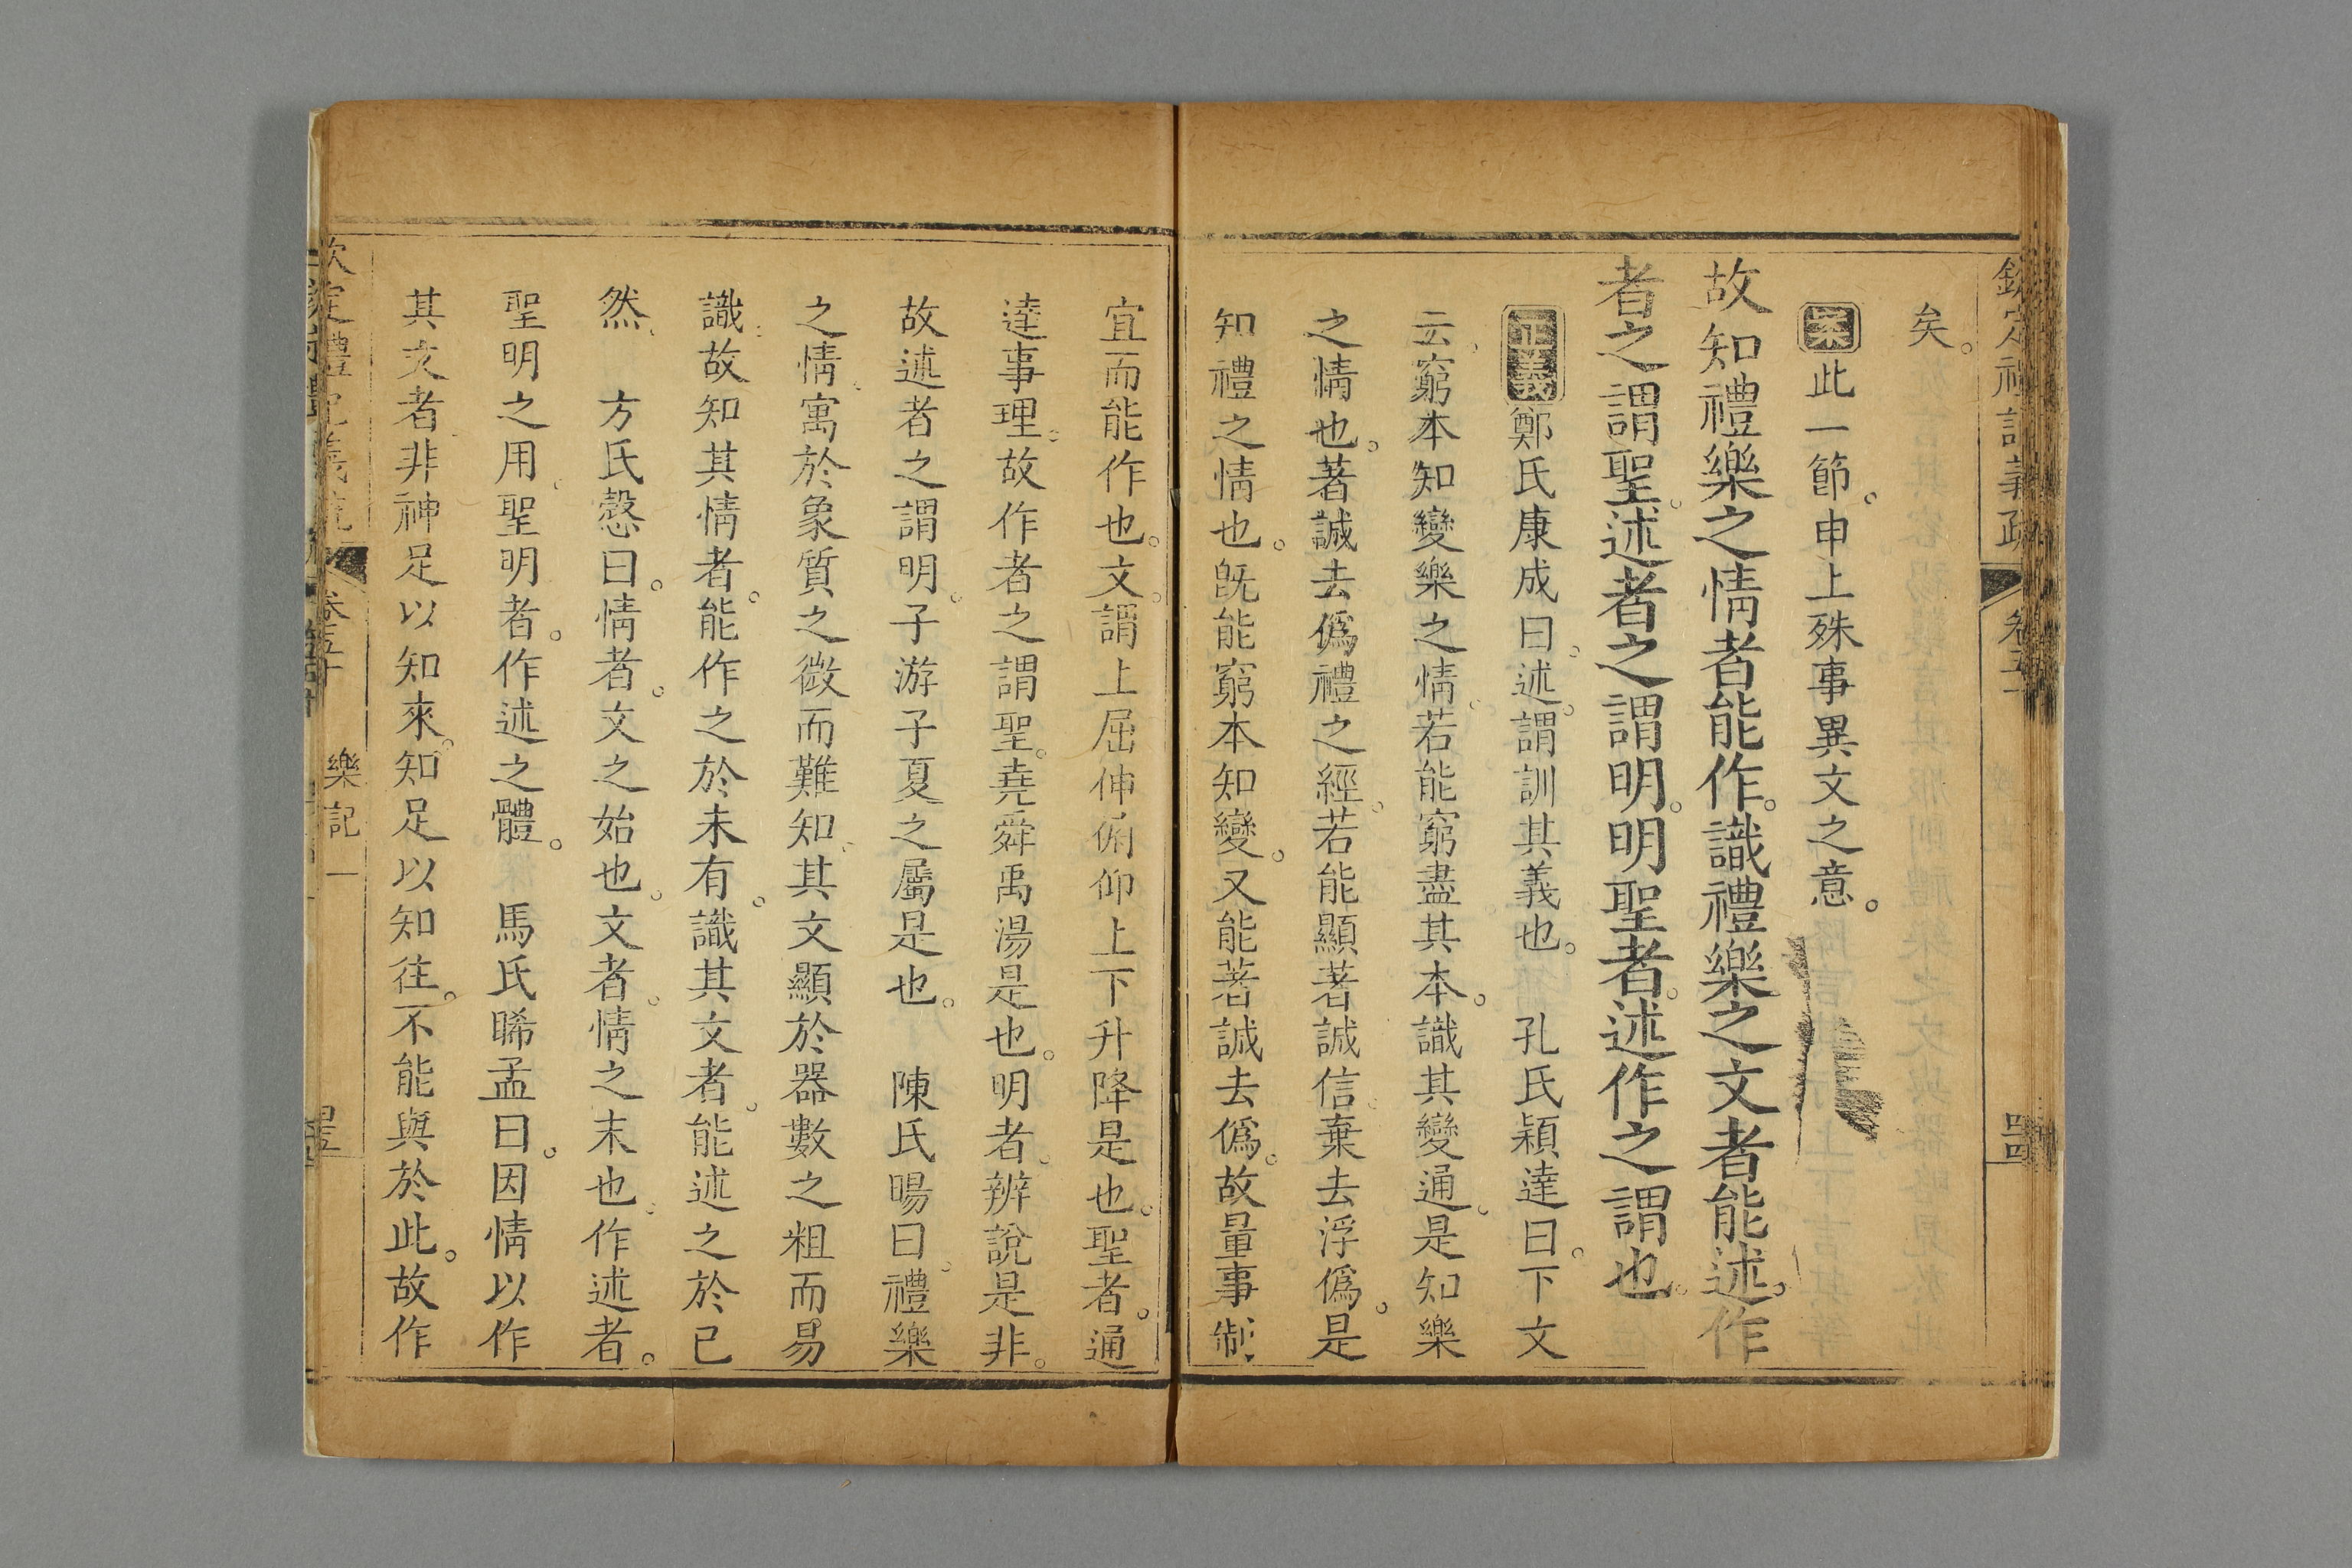 矣。
案此一節。申上殊事異文之意。
故知禮樂之情者能作。識禮樂之文者能述。作
者之謂聖。述者之謂明。明聖者。述作之謂也。
正義鄭氏康成曰。述。謂訓其義也。　孔氏穎達曰。下文
云窮本知變樂之情。若能窮盡其本。識其變通。是知樂
之情也。著誠去僞禮之經。若能顯著誠信。棄去浮僞。是
知禮之情也。旣能窮本知變。又能著誠去僞。故量事制
宜而能作也。文。謂上屈伸俯仰上下升降是也。聖者。通
達事理。故作者之謂聖。堯舜禹湯是也。明者。辨說是非。
故述者之謂明。子游子夏之屬是也。　陳氏暘曰。禮樂
之情。寓於象質之微而難知。其文顯於器數之粗而易
識。故知其情者。能作之於未有。識其文者。能述之於已
然。　方氏慤曰。情者。文之始也。文者。情之末也。作述者。
聖明之用。聖明者。作述之體。　馬氏睎孟曰。因情以作
其文者。非神足以知來。知足以知往。不能與於此。故作
樂記一